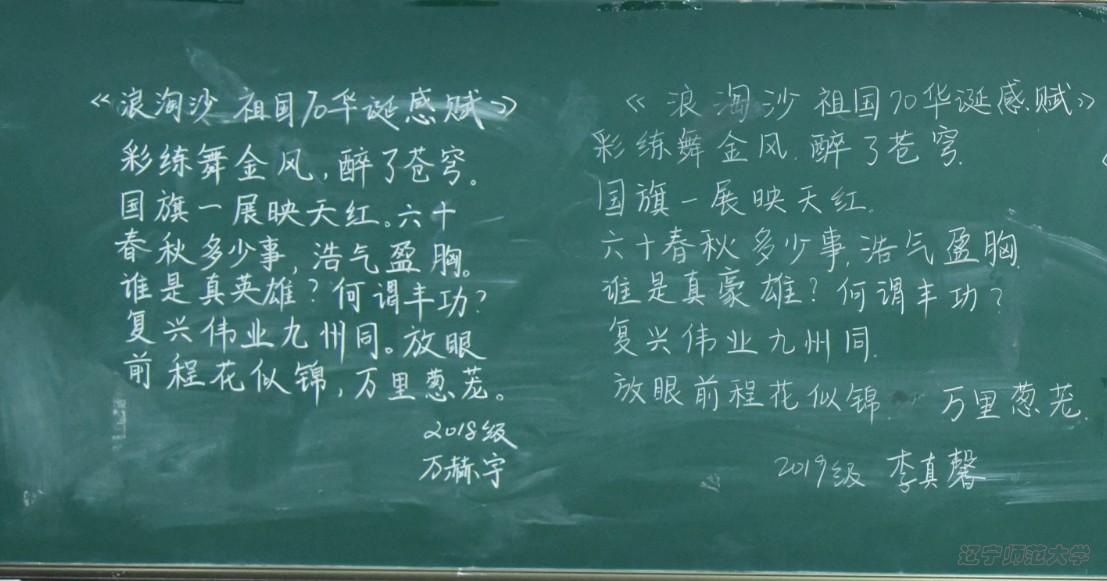 《浪淘沙 祖国70华诞感赋》
彩练舞金风,醉了苍穹。
国旗一展映天红。六十
春秋多少事,浩气盈胸。
谁是真英雄?何谓丰功?
复兴伟业九州同。放眼
前程花似锦,万里葱茏。
2018级
万赫宇
《浪淘沙 祖国70华诞感赋》
彩练舞金风.醉了苍穹.
国旗一展映天红.
六十春秋多少事,浩气盈胸.
谁是真豪雄?何谓丰功?
复兴伟业九州同.
放眼前程花似锦. 万里葱茏.
2019级 李真馨
辽宁师范大学